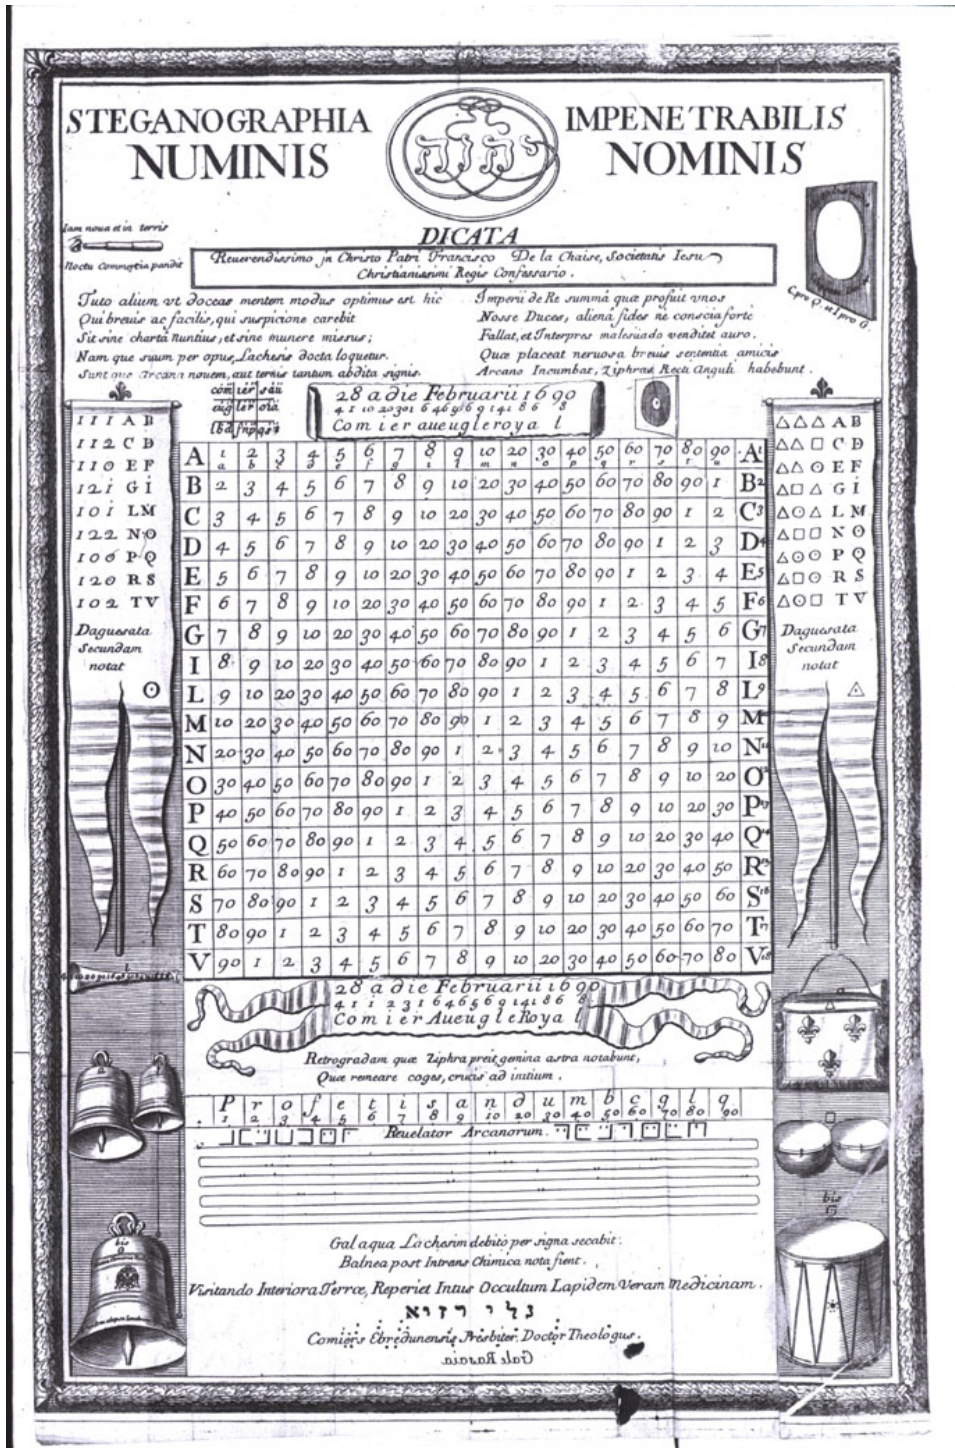 STEGANOGRAPHIA IMPENETRABILIS
יהוה
NUMINIS NOMINIS
DICATA
Iam noua et in terris
Noctu Commercia pandit
Reuerendissimo in Christo Patri Francisco De la Chaise, Societatis Iesu
Christianissimi Regis Confessario.
C pro Q. et I pro G.
Tuto alium vt doceas mentem modus optimus est hic
Qui breuis ac facilis, qui suspicione carebit
Sit sine charta nuntius, et sine munere missus;
Nam que suum per opus, Lachesis docta loquetur.
Sunt que Arcana nouem, aut ternis tantum abdita signis.
Imperii de Re summâ quæ profuit vnos
Nosse Duces, alienâ fides ne conscia forte
Fallat, et Interpres malesuado venditet auro.
Quæ placeat neruosa breuis sententia amicis
Arcano Incumbat, Ziphras Recti Anguli habebunt.
com ier sau
eug ler oia
28 a die Februarii 1690
Comier aueugle royal
111 A B
112 C D
110 E F
121 G I
101 L M
122 N O
100 P Q
120 R S
102 T V
Daguesata
Secundam
notat
⊙
A 1 2 3 4 5 6 7 8 9 10 20 30 40 50 60 70 80 90 A1
a b c d e f g i l m n o p q r s t u
B 2 3 4 5 6 7 8 9 10 20 30 40 50 60 70 80 90 1 B2
C 3 4 5 6 7 8 9 10 20 30 40 50 60 70 80 90 1 2 C3
D 4 5 6 7 8 9 10 20 30 40 50 60 70 80 90 1 2 3 D4
E 5 6 7 8 9 10 20 30 40 50 60 70 80 90 1 2 3 4 E5
F 6 7 8 9 10 20 30 40 50 60 70 80 90 1 2 3 4 5 F6
G 7 8 9 10 20 30 40 50 60 70 80 90 1 2 3 4 5 6 G7
I 8 9 10 20 30 40 50 60 70 80 90 1 2 3 4 5 6 7 I8
L 9 10 20 30 40 50 60 70 80 90 1 2 3 4 5 6 7 8 L9
M 10 20 30 40 50 60 70 80 90 1 2 3 4 5 6 7 8 9 M
N 20 30 40 50 60 70 80 90 1 2 3 4 5 6 7 8 9 10 N
O 30 40 50 60 70 80 90 1 2 3 4 5 6 7 8 9 10 20 O
P 40 50 60 70 80 90 1 2 3 4 5 6 7 8 9 10 20 30 P
Q 50 60 70 80 90 1 2 3 4 5 6 7 8 9 10 20 30 40 Q
R 60 70 80 90 1 2 3 4 5 6 7 8 9 10 20 30 40 50 R
S 70 80 90 1 2 3 4 5 6 7 8 9 10 20 30 40 50 60 S
T 80 90 1 2 3 4 5 6 7 8 9 10 20 30 40 50 60 70 T
V 90 1 2 3 4 5 6 7 8 9 10 20 30 40 50 60 70 80 V
△△△ A B
△△□ C D
△△⊙ E F
△□△ G I
△⊙△ L M
△□□ N O
△⊙⊙ P Q
△□⊙ R S
△⊙□ T V
Daguesata
Secundam
notat
28 a die Februarii 1690
Comier Aueugle Royal
Retrogradam quæ Ziphra preit gemina astra notabunt,
Quæ remeare coges, crucis ad initium.
P r o f e t i s a n d u m b c g l q
1 2 3 4 5 6 7 8 9 10 20 30 40 50 60 70 80 90
Reuelator Arcanorum.
bis
bis
Gal aqua Lachesim debito per signa secabit:
Balnea post Intrans Chimica nota fient.
Visitando Interiora Terræ, Reperiet Intus Occultum Lapidem Veram Medicinam.
גלי רזיא
Comiers Ebredunensis Presbiter Doctor Theologus.
Gale Rasaia